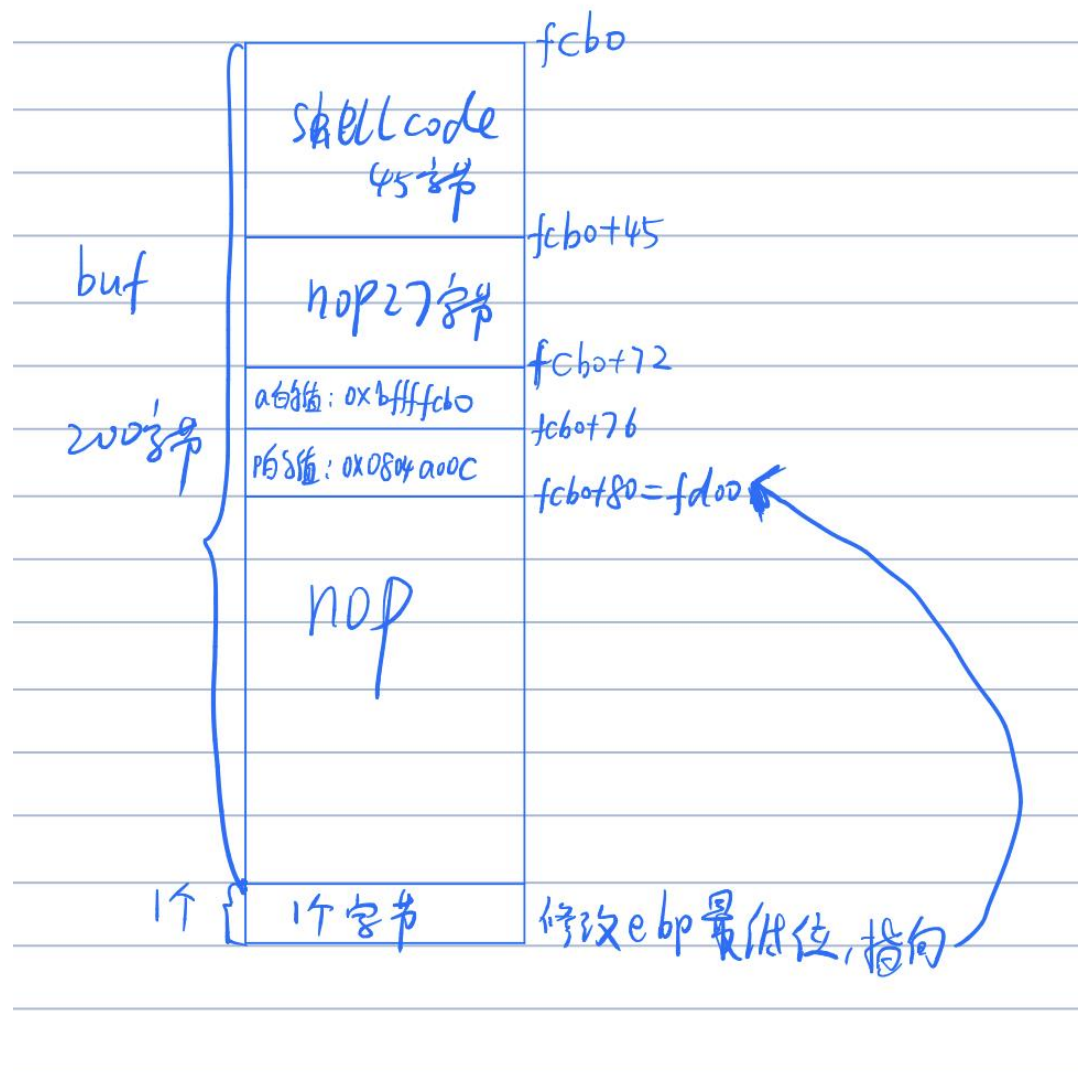 fcb0
shellcode
45字节
fcb0+45
buf
nop27字节
fcb0+72
a的值: 0xbffffcb0
fcb0+76
200字节
p的值: 0x0804a00C
fcb0+80=fd00
nop
1个
1个字节
修改ebp最低位,指向